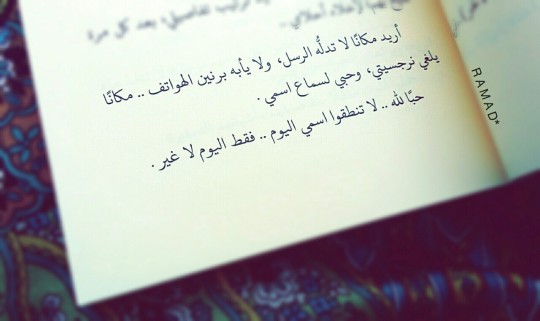 ترتيب تفاصيلي، بعد كل مرة
أريد مكانًا لا تدلُّه الرسل، ولا يأبه برنين الهواتف .. مكانًا
يلغي نرجسيتي، وحبي لسماع اسمي .
حبًا لله .. لا تنطقوا اسمي اليوم .. فقط اليوم لا غير .
RAMAD*